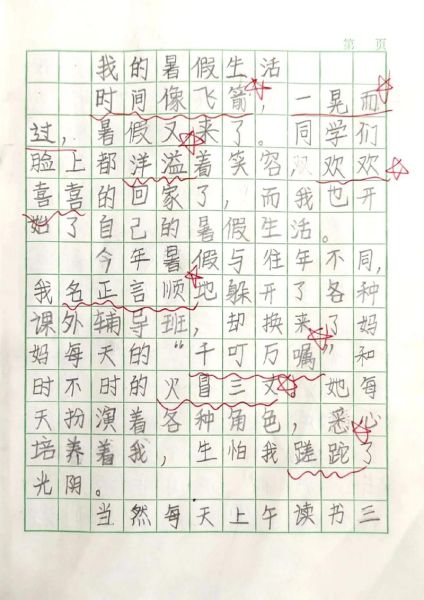 第 页
我的暑假生活
时间像飞箭，一晃而
过，暑假又来了。同学们
脸上都洋溢着笑容，欢欢
喜喜的回家了，而我也开
始了自己的暑假生活。
今年暑假与往年不同，
我名正言顺地躲开了各种
课外辅导班，却换来了妈
妈每天的“千叮万嘱”和
时不时的火冒三丈，她每
天扮演着各种角色，悉心
培养着我，生怕我蹉跎了
光阴。
当然每天上午读书三